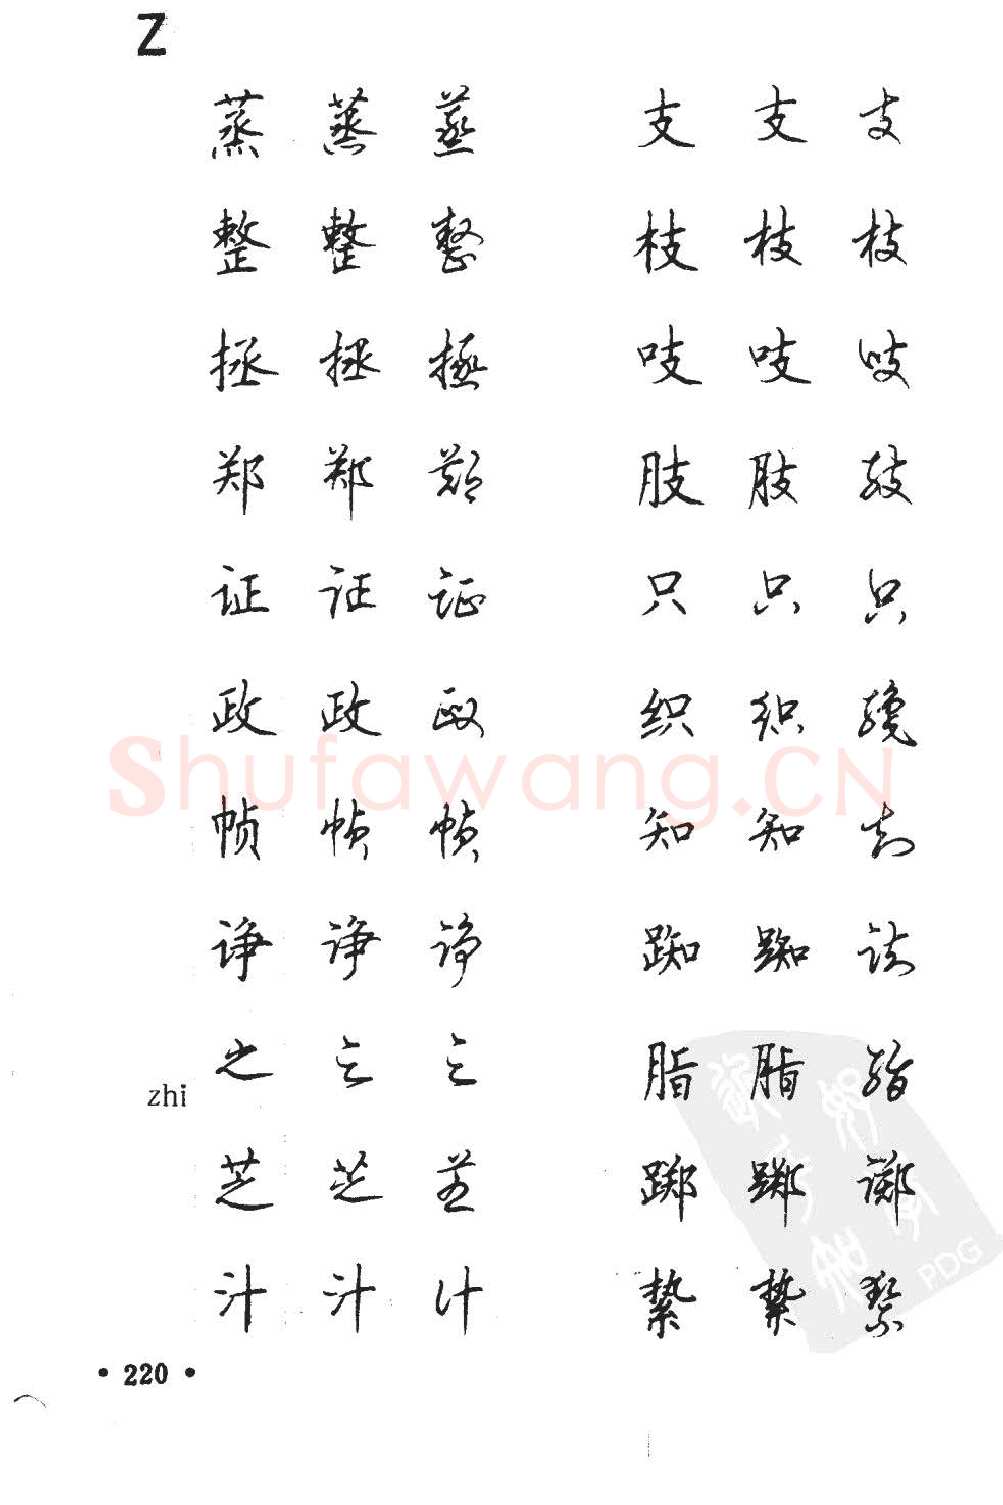 Z
蒸 蒸 蒸 支 支 支
整 整 整 枝 枝 枝
拯 拯 拯 吱 吱 吱
郑 郑 郑 肢 肢 肢
证 证 证 只 只 只
政 政 政 织 织 织
Shufawang.CN
帧 帧 帧 知 知 知
诤 诤 诤 踟 踟 踟
之 之 之 脂 脂 脂
zhi
芝 芝 芝 踯 踯 踯
PDG
汁 汁 汁 絷 絷 絷
• 220 •